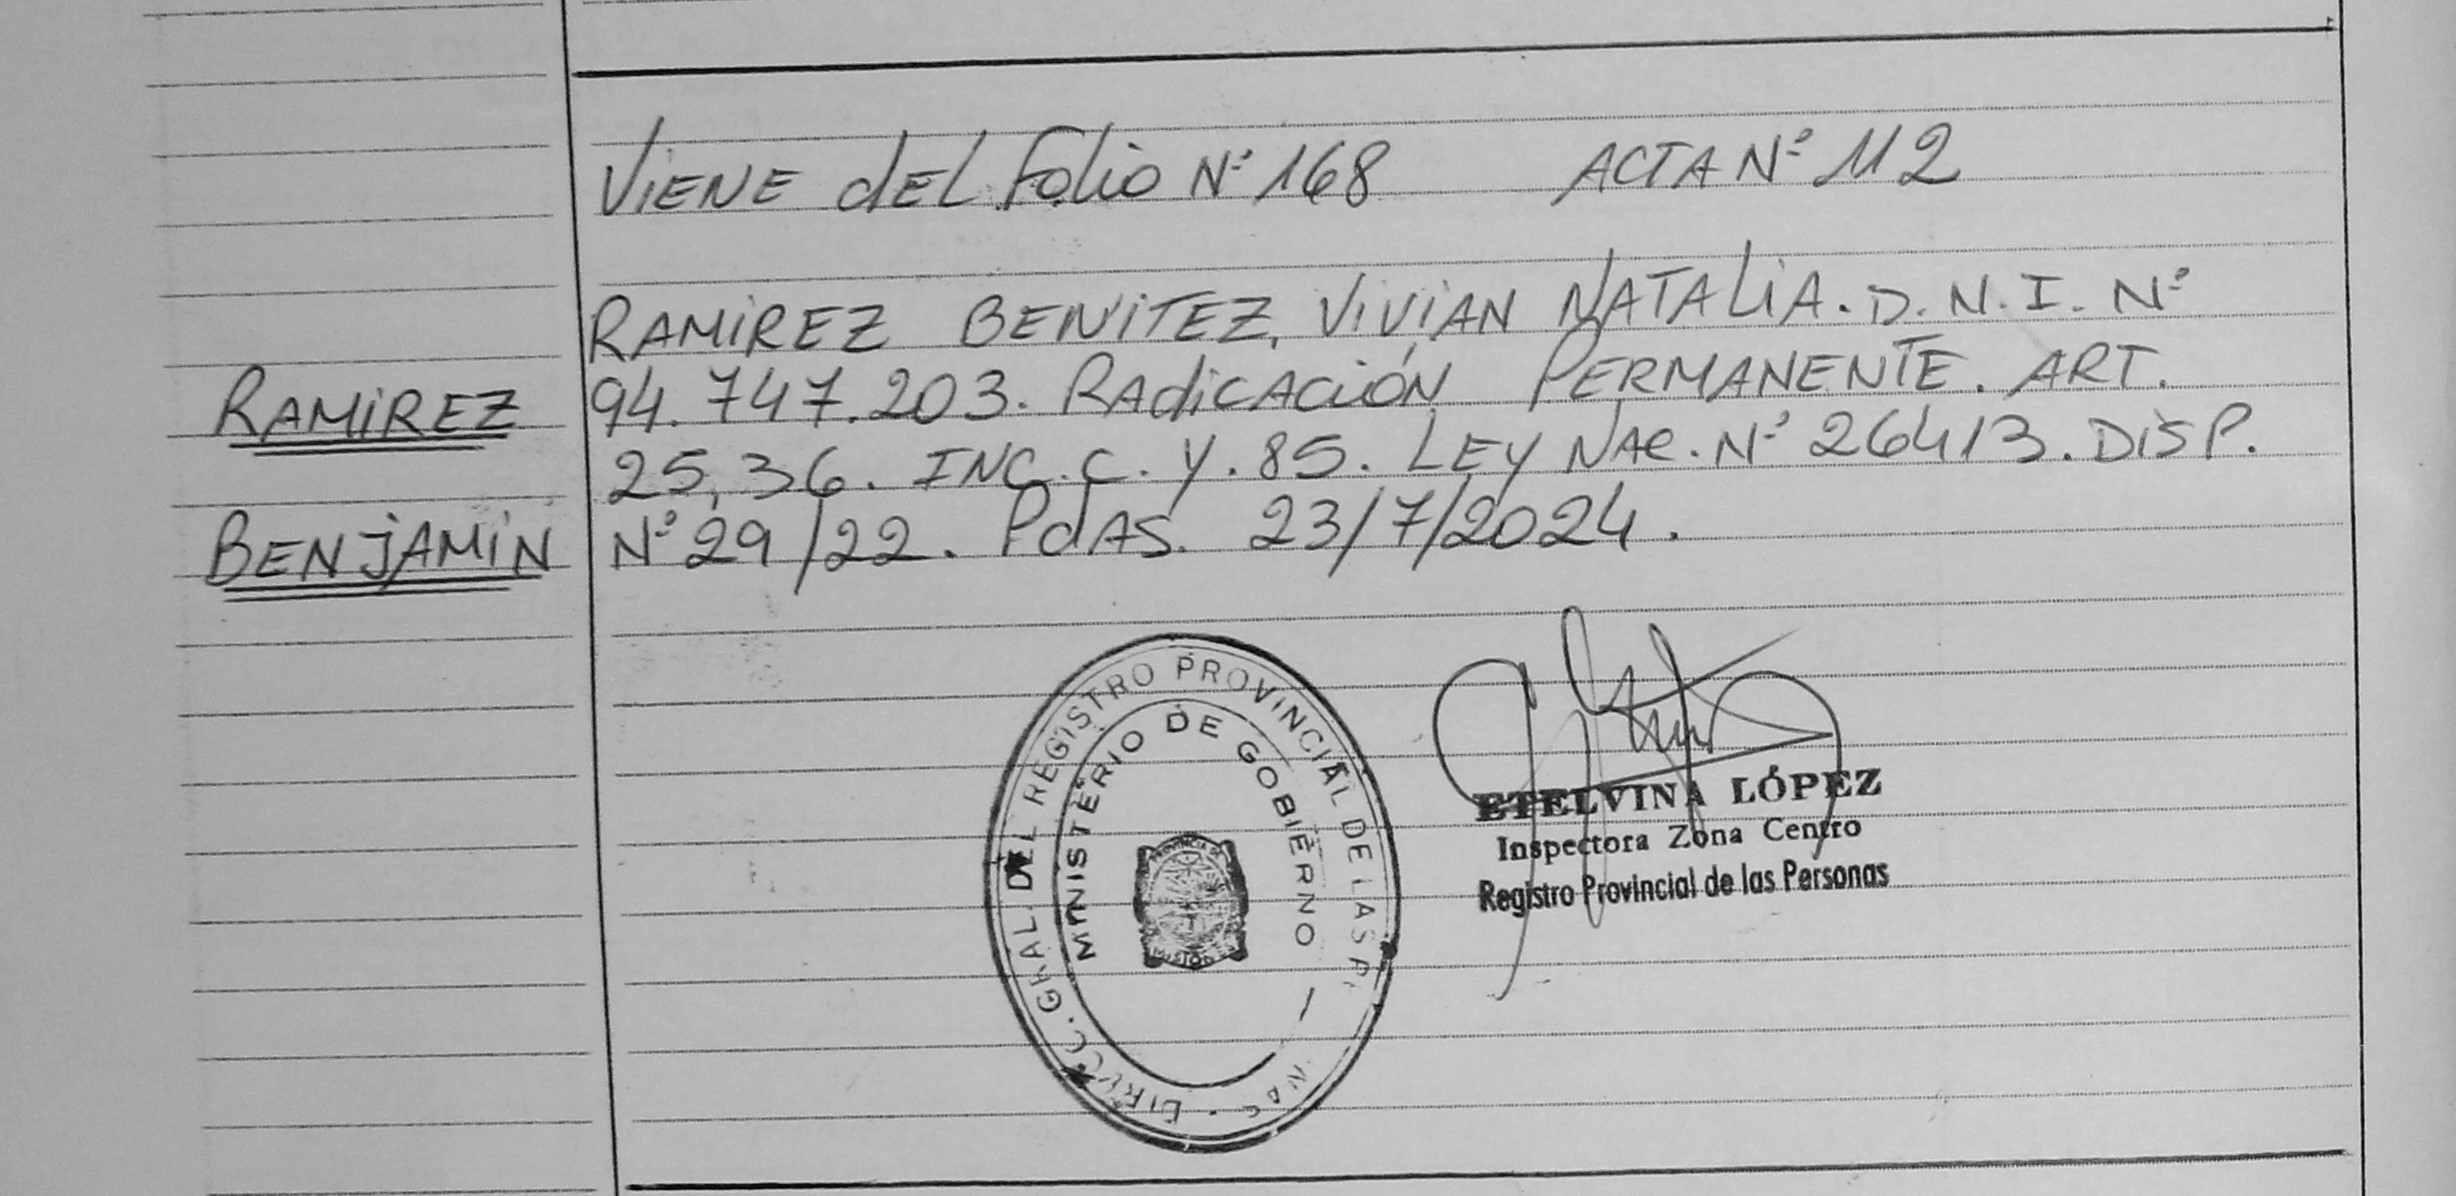 Viene del Folio Nº 168 ACTA Nº 112
RAMIREZ BENITEZ, ViViAN NATALiA. D. N. I. Nº
94.747.203. RAdiCACiÓN PERMANENTE. ART.
25,36. INC. C. Y. 85. LEY NAC. Nº 26413. DiSP.
Nº 29/22. PdAS. 23/7/2024.
RAMIREZ
BENJAMIN
DIRECC. GRAL. DEL REGISTRO PROVINCIAL DE LAS P
MINISTERIO DE GOBIERNO
PROVINCIA DE
MISIONES
ETELVINA LÓPEZ
Inspectora Zona Centro
Registro Provincial de las Personas